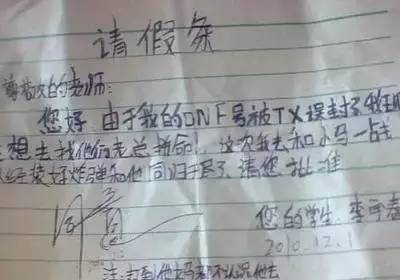 请假条
尊敬的老师:
您好,由于我的DNF号被TX误封了,我现
想去找他们老总拼命!这次我去和小马一战
已经装好炸弹和他同归于尽了,请您批准
同意
您的学生:李
2010.12.1
注:封到他妈都不认识他去